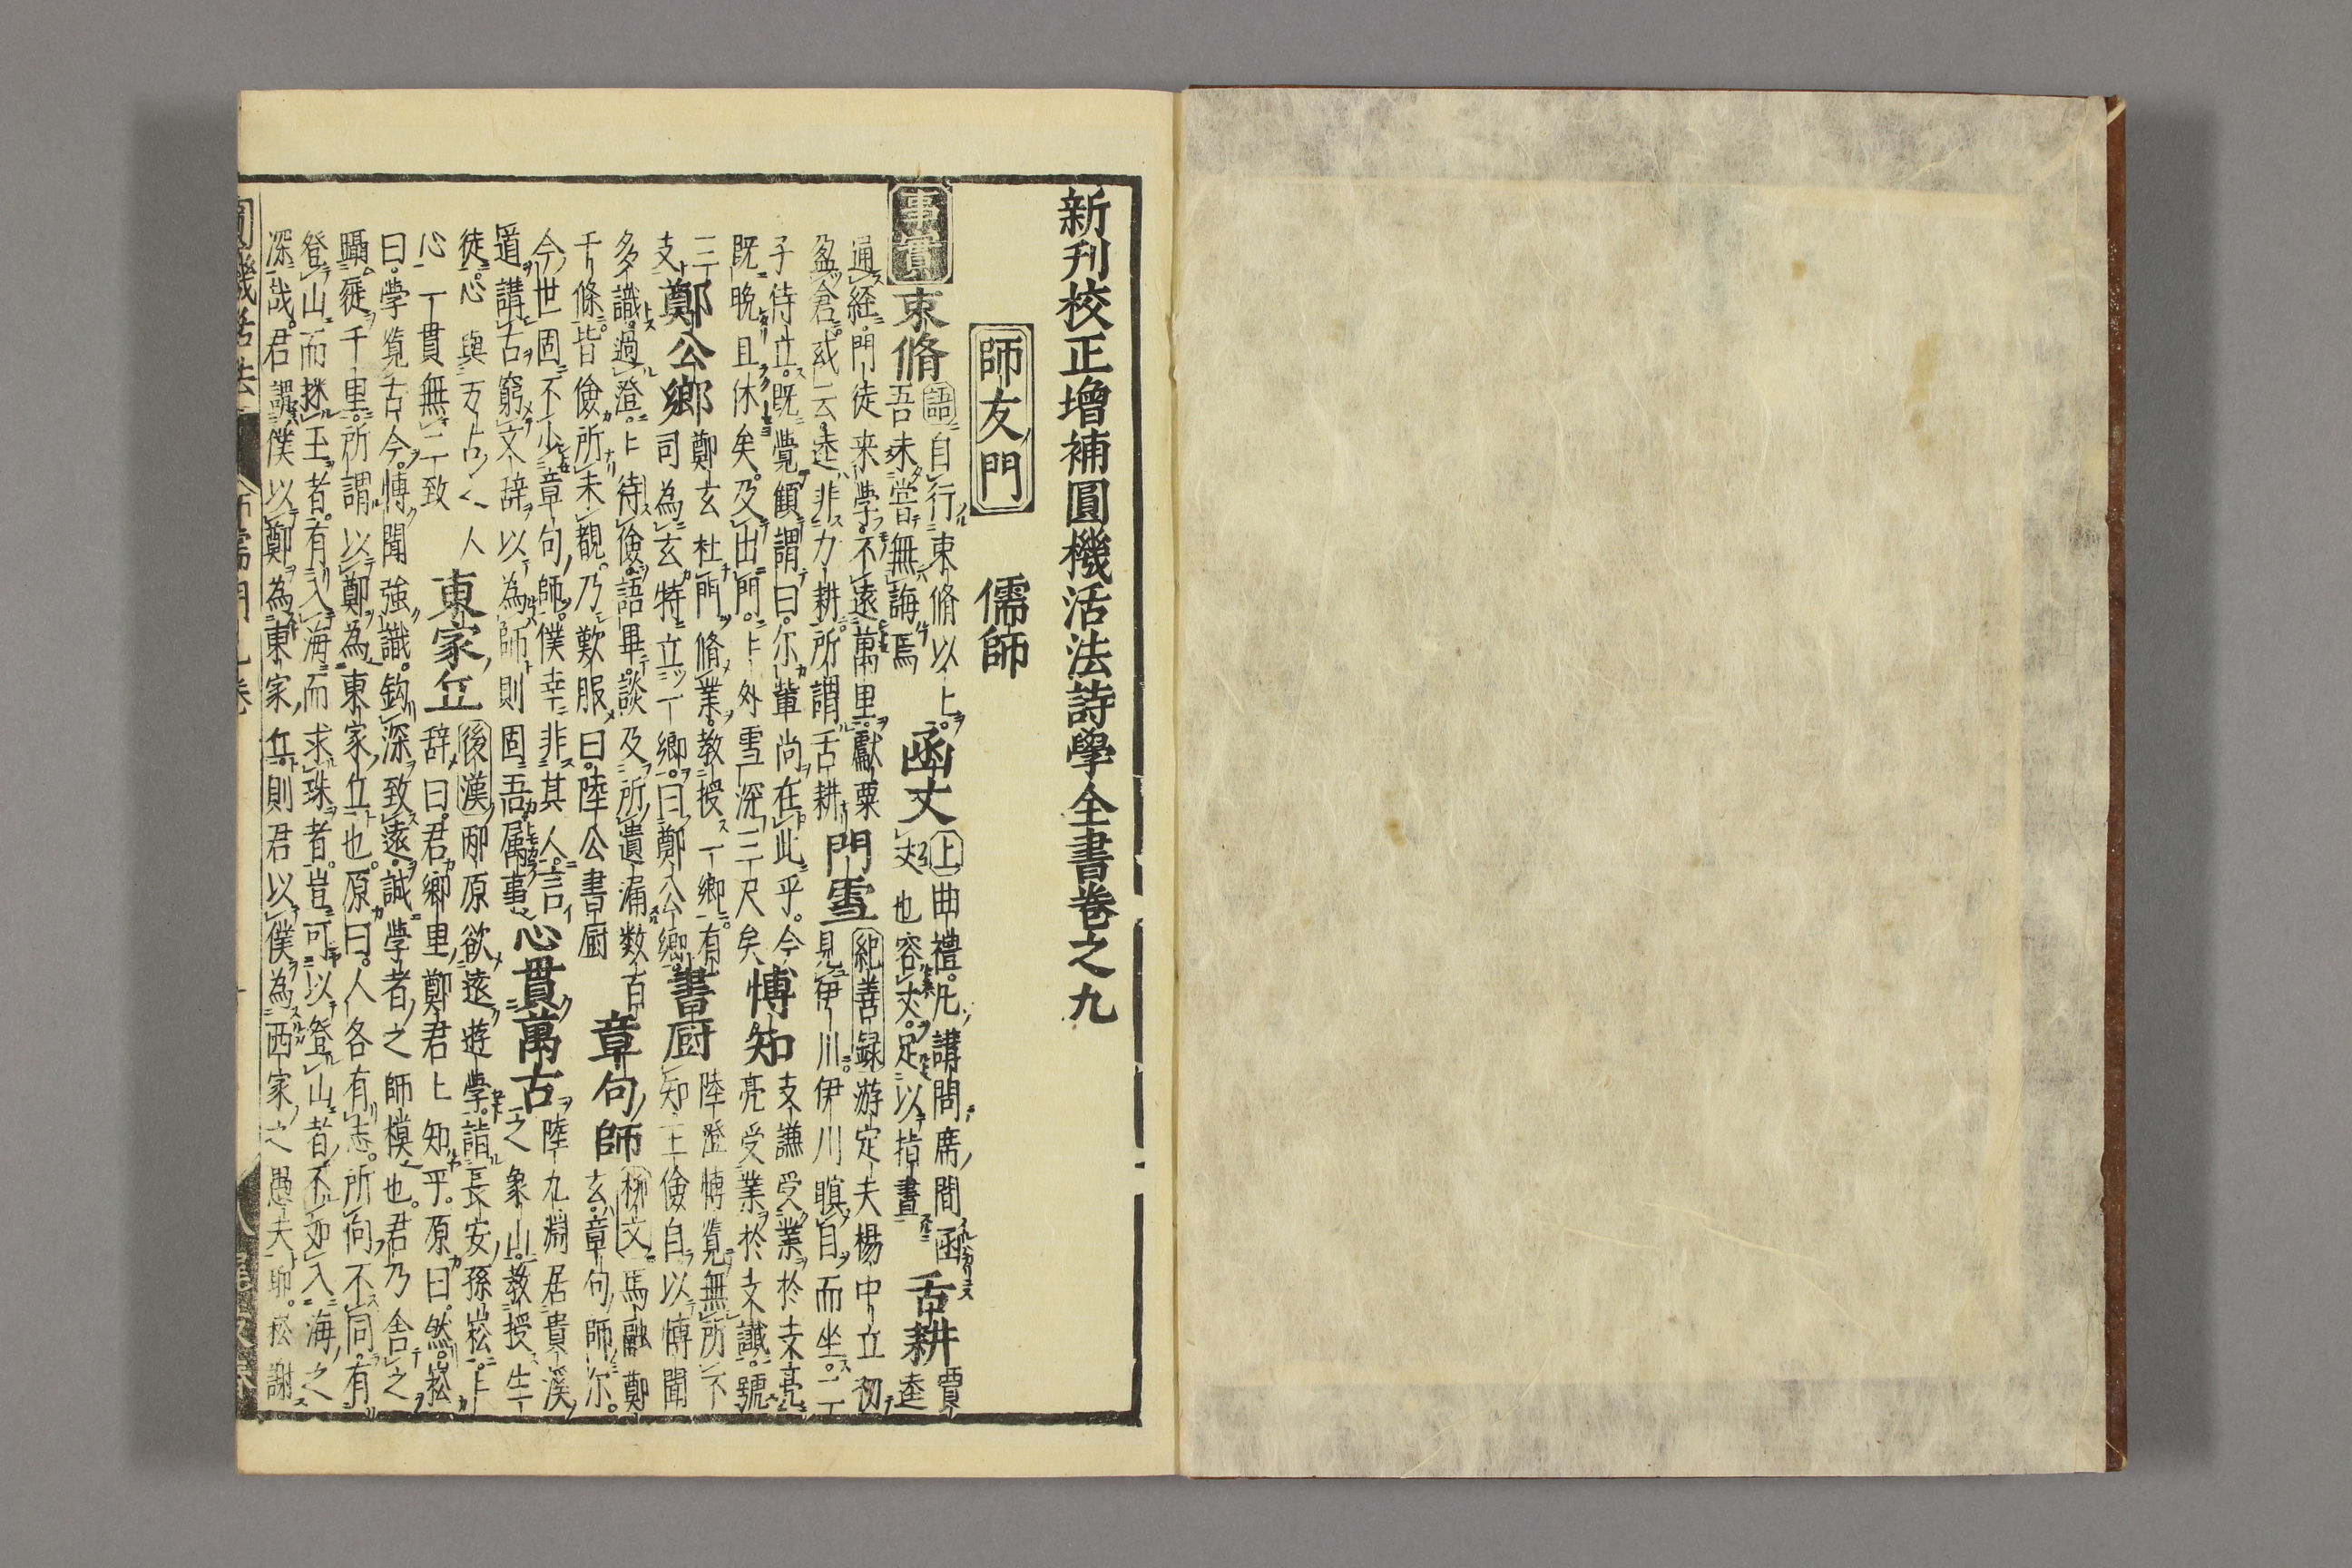 新刊校正增補圓機活法詩學全書卷之九
師友門
儒師
事實
束脩 語 自行束脩以上
吾未嘗無誨焉
函丈 上曲禮凡講問席間函
丈丈也容丈足以指畫
舌耕 賈逵
通経門徒来学不遠萬里獻粟
盈倉或云逵非力耕所謂舌耕
門雪 紀善録 游定夫楊中立初
見伊川伊川瞑目而坐二
子侍立既覺顧謂曰尓輩尚在此乎今
既晩且休矣及出門上外雪深三尺矣
博知 支謙受業於支亮
亮受業於支讖號
三支
鄭公鄉 鄭玄杜門脩業教授一鄉有
司為玄特立一鄉曰鄭公鄉
書厨 陸澄博覧無所不
知王儉自以博聞
多識過澄上待儉語畢談及所遺漏数百
千條皆儉所未覩乃歎服曰陸公書厨
章句師 柳文 馬融鄭
玄章句師尓
今世固不少章句師僕幸非其人言
道講古窮文辞以為師則固吾属事
心貫萬古 陸九淵居貴溪
之象山教授生
徒心與万占く人
心一貫無二致
東家丘 後漢 邴原欲遠遊学詣長安孫崧上
辞曰君鄉里鄭君上知乎原曰然崧
曰学覧古今博聞強識鈎深致遠誠学者之師模也君乃舍之
躡屣千里所謂以鄭為東家丘也原曰人各有志所向不同有
登山而採玉者有入海而求珠者豈可以登山者不如入海之
深哉君謂僕以鄭為東家丘則君以僕為西家之愚夫耶崧謝